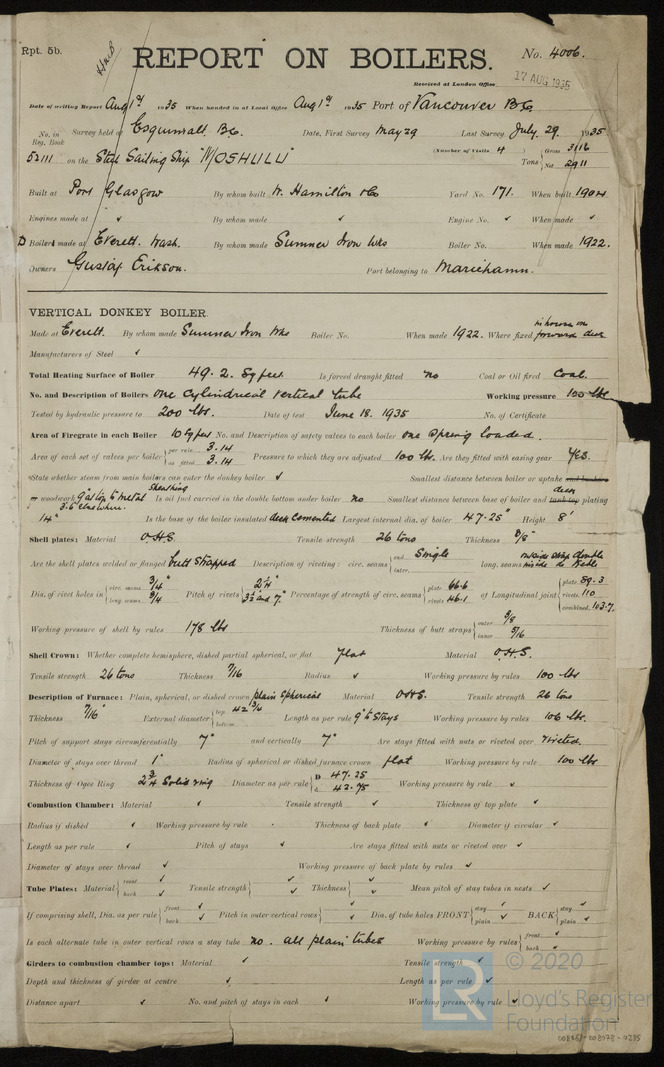 Rpt. 5b.
REPORT ON BOILERS.
No. 4006.
Received at London Office 17 AUG 1935
Date of writing Report Aug 1st 1935 When handed in at Local Office Aug 1st 1935 Port of Vancouver B.C.
No. in Reg. Book Survey held at Esquimalt. B.C. Date, First Survey May 29 Last Survey July. 29. 1935
(Number of Visits 4)
52111 on the Steel Sailing Ship "MOSHULU" Tons Gross 3116 Net 2911
Built at Port Glasgow By whom built W. Hamilton & Co Yard No. 171. When built 1904
Engines made at ✓ By whom made ✓ Engine No. ✓ When made ✓
D Boilers made at Everett. Wash. By whom made Sumner Iron Wks Boiler No. When made 1922.
Owners Gustaf Erikson. Port belonging to Mariehamn.
VERTICAL DONKEY BOILER.
Made at Everett. By whom made Sumner Iron Wks Boiler No. When made 1922. Where fixed in house on forward deck
Manufacturers of Steel ✓
Total Heating Surface of Boiler 49.2. Sq feet Is forced draught fitted no Coal or Oil fired Coal.
No. and Description of Boilers one cylindrical vertical tube Working pressure 100 lbs
Tested by hydraulic pressure to 200 lbs. Date of test June 18. 1935 No. of Certificate
Area of Firegrate in each Boiler 10 Sq feet No. and Description of safety valves to each boiler one Spring loaded.
Area of each set of valves per boiler per rule 3.14 as fitted 3.14 Pressure to which they are adjusted 100 lbs. Are they fitted with easing gear Yes.
State whether steam from main boilers can enter the donkey boiler ✓ Smallest distance between boiler or uptake and bunkers
or woodwork 9" at top to metal sheathing 3'.6" elsewhere. Is oil fuel carried in the double bottom under boiler no Smallest distance between base of boiler and tank top deck plating
14" Is the base of the boiler insulated deck cemented Largest internal dia. of boiler 47.25" Height 8'
Shell plates: Material O.H.S Tensile strength 26 tons Thickness 3/8"
Are the shell plates welded or flanged butt strapped Description of riveting: circ. seams end Single inter. long. seams
Dia. of rivet holes in circ. seams 3/4" long. seams 3/4 Pitch of rivets 2 1/4" 3 1/2 and 7" Percentage of strength of circ. seams plate 66.6 rivets 46.1 of Longitudinal joint plate 89.3 rivets 110 combined 103.7.
Working pressure of shell by rules 178 lbs Thickness of butt straps outer 3/8 inner 5/16
Shell Crown: Whether complete hemisphere, dished partial spherical, or flat flat Material O.H.S.
Tensile strength 26 tons Thickness 7/16 Radius ✓ Working pressure by rules 100 lbs
Description of Furnace: Plain, spherical, or dished crown plain spherical Material OHS. Tensile strength 26 tons
Thickness 7/16" External diameter top 42 13/16 bottom Length as per rule 9" to Stays Working pressure by rules 106 lbs.
Pitch of support stays circumferentially 7" and vertically 7" Are stays fitted with nuts or riveted over riveted.
Diameter of stays over thread 1" Radius of spherical or dished furnace crown flat Working pressure by rule 100 lbs
Thickness of Ogee Ring 2 3/4 Solid ring Diameter as per rule D 47.25 d 42.75 Working pressure by rule ✓
Combustion Chamber: Material ✓ Tensile strength ✓ Thickness of top plate ✓
Radius if dished ✓ Working pressure by rule Thickness of back plate ✓ Diameter if circular ✓
Length as per rule ✓ Pitch of stays ✓ Are stays fitted with nuts or riveted over ✓
Diameter of stays over thread ✓ Working pressure of back plate by rules ✓
Tube Plates: Material front ✓ back ✓ Tensile strength ✓ ✓ Thickness ✓ ✓ Mean pitch of stay tubes in nests ✓
If comprising shell, Dia. as per rule front ✓ back ✓ Pitch in outer vertical rows ✓ ✓ Dia. of tube holes FRONT stay ✓ plain ✓ BACK stay ✓ plain ✓
Is each alternate tube in outer vertical rows a stay tube no. all plain tubes Working pressure by rules front ✓ back ✓
Girders to combustion chamber tops: Material ✓ Tensile strength ✓
Depth and thickness of girder at centre ✓ Length as per rule ✓
Distance apart ✓ No. and pitch of stays in each ✓ Working pressure by rule ✓
LR © 2020
Lloyd's Register
Foundation